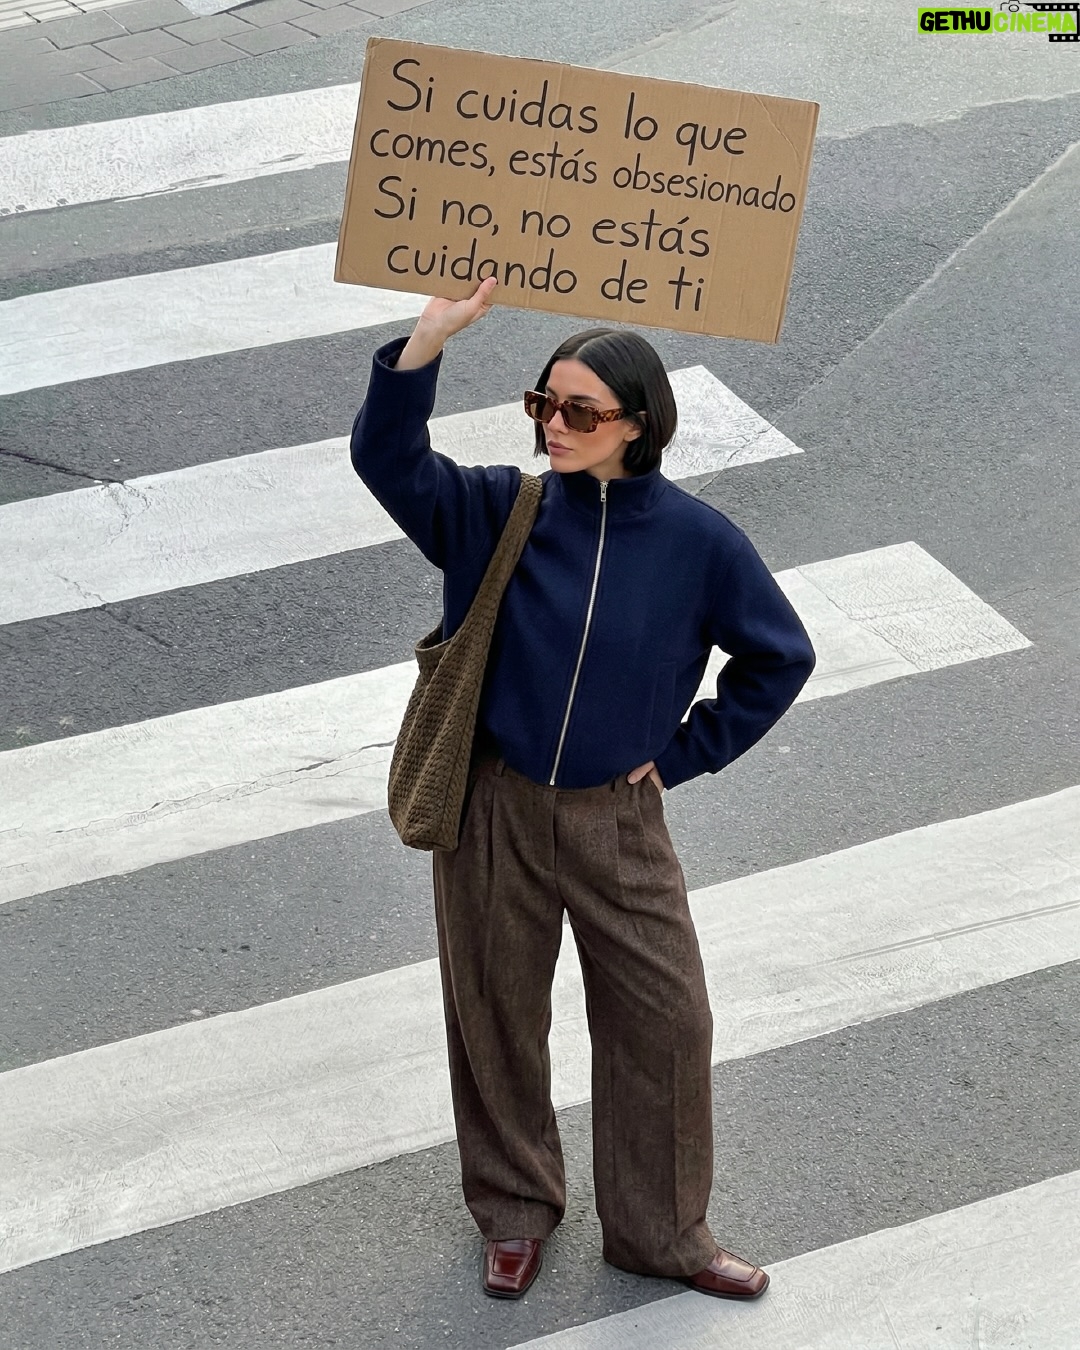 GETHU CINEMA
Si cuidas lo que
comes, estás obsesionado
Si no, no estás
cuidando de ti